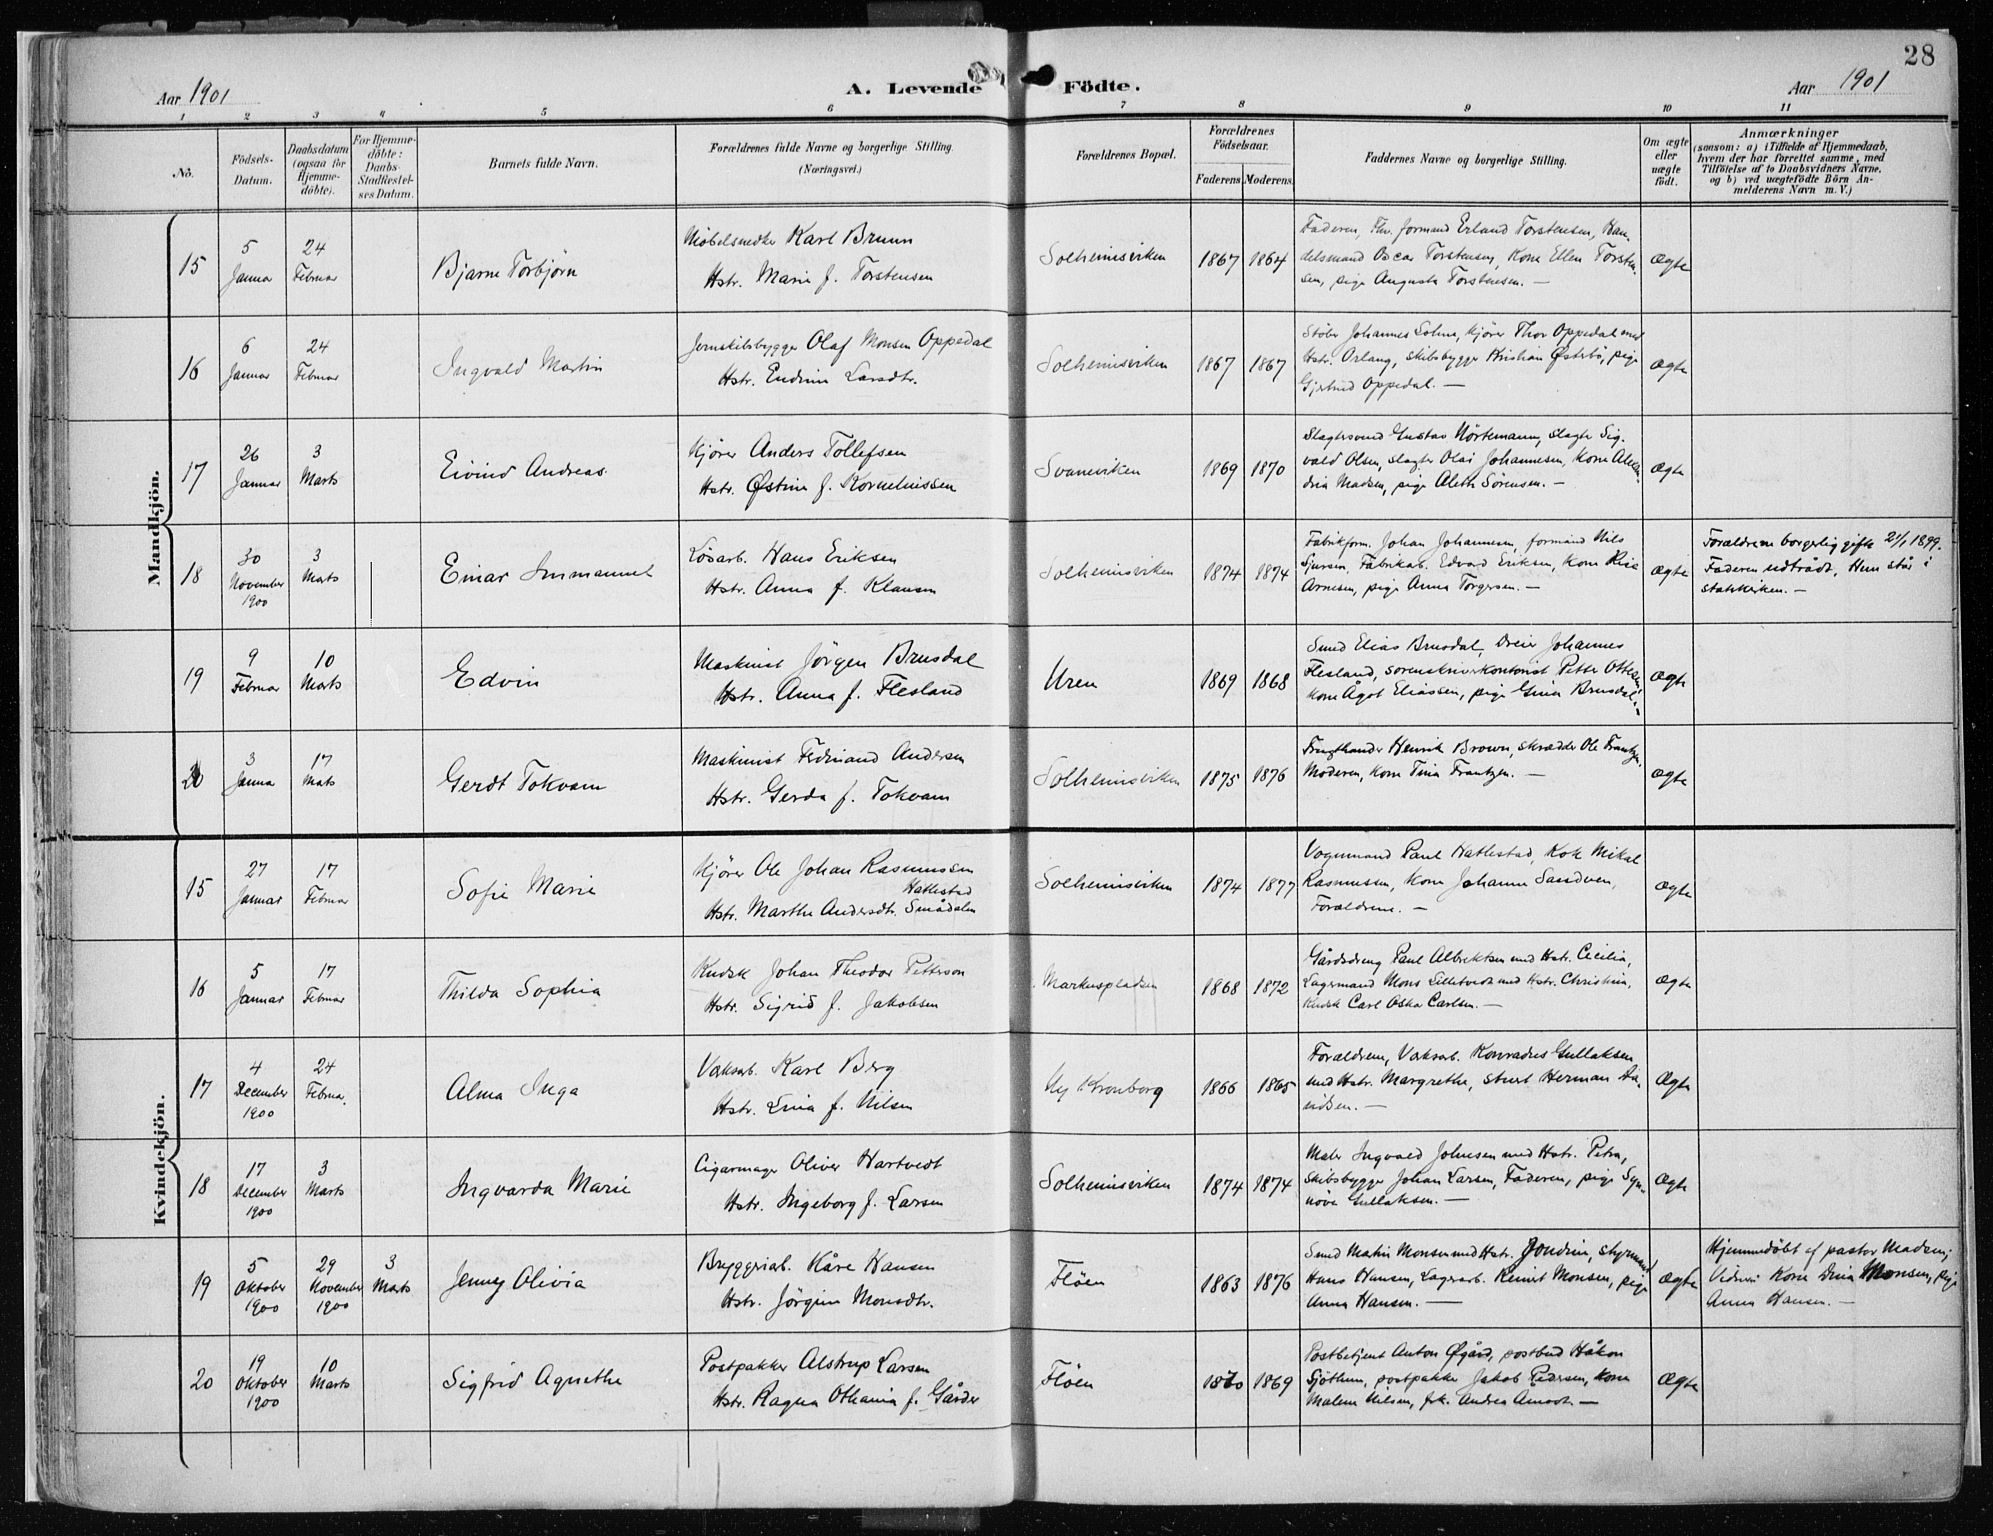 28
Aar 1901
A. Levende Födte.
Aar 1901
1 2 3 4 5 6 7 8 9 10 11
No.
Födsels-Datum.
Daabsdatum (ogsaa for Hjemmedöbte).
For Hjemmedöbte: Daabs-Stadfestelses Datum.
Barnets fulde Navn.
Forældrenes fulde Navne og borgerlige Stilling.
(Næringsvei.)
Forældrenes Bopæl.
Forældrenes Födselsaar.
Faderens. Moderens.
Faddernes Navne og borgerlige Stilling.
Om ægte eller uægte födt.
Anmærkninger
(saasom: a) i Tilfælde af Hjemmedaab,
hvem der har forrettet samme, med
Tilföielse af to Daabsvidners Navne,
og b) ved uægtefödte Börn An-
melderens Navn m. V.)
Mandkjön.
15
5 Januar
24 Februar
Bjarne Torbjørn
Møbelsnedker Karl Bruun
Hstr. Marie f. Torstensen
Solheimsviken
1867 1864
Faderen, Thv. formand Erland Torstensen, Han-
delsmand Oscar Torstensen, Kone Ellen Torsten-
sen, pige Augusta Torstensen. —
Ægte
16
6 Januar
24 Februar
Ingvald Martin
Jernskibsbygger Olaf Monsen Oppedal
Hstr. Larsdtr.
Solheimsviken
1867 1867
Støber Johannes Kjører Thor Oppedal med
Hstr. skibsbygger Kristian Østebø, pige
Gjertrud Oppedal. —
Ægte
17
26 Januar
3 Marts
Eivind Andreas
Kjører Anders Tollefsen
Hstr. Østine f. Korneliussen
Svaneviken
1869 1870
Slagtersvend Gustav slagter Sig-
vald Olsen, slagter Olai Johannesen, Kone Alexan-
dria Madsen, pige Aleth Sörensen. —
Ægte
18
30 November 1900
3 Marts
Einar Immanuel
Lösarb. Hans Eriksen
Hstr. Anna f. Klausen
Solheimsviken
1874 1874
Fabrikform. Johan Johannesen, formand Nils
Sjursen, Fabrikab. Edvard Eriksen, Kone
Arnesen, pige Anna Torgersen. —
Ægte
Forældrene borgerlig gifte 21/1 1899.
Faderen udtrådt, Hun står i
statskirken. —
19
9 Februar
10 Marts
Edvin
Maskinist Jörgen Brusdal
Hstr. Anna f. Flesland
Uren
1869 1868
Smed Elias Brusdal, Dreier Johannes
Flesland, sorenskriverkontorist Petter Ottesen,
Kone Ågot Eliassen, pige Gina Brusdal. —
Ægte
20
3 Januar
17 Marts
Gerdt Tokvam
Maskinist Ferdinand Andersen
Hstr. Gerda f. Tokvam
Solheimsviken
1875 1876
Frugthandler Henrik Brown, skrædder Ole Frantzen,
Moderen, Kone Tina Frantzen. —
Ægte
Kvindekjön.
15
27 Januar
17 Februar
Sofie Marie
Kjører Ole Johan Rasmussen
Hatlestad
Hstr. Marthe Andersdtr. Smådalen
Solheimsviken
1874 1877
Vognmand Paul Hatlestad, Kok Mikal
Rasmussen, Kone Johanne Sandven,
Forældrene. —
Ægte
16
5 Januar
17 Februar
Thilda Sophia
Kudsk Johan Theodor Petterson
Hstr. Sigrid f. Jakobsen
Markuspladsen
1868 1872
Gårdsdreng Paul Albrektsen med Hstr. Cecilia,
Lagermand Mons Lilletvedt med Hstr. Christine,
Kudsk Carl Oskar Carlsen. —
Ægte
17
4 December 1900
24 Februar.
Alma Inga
Væksarb. Karl Berg
Hstr. Lina f. Nilsen
Ny Kronborg
1866 1865
Forældrene, Væksarb. Konradus Gullaksen
med Hstr. Margrethe, stuert Herman Aa-
—
Ægte
18
17 December 1900
3 Marts
Ingvarda Marie
Cigarmager Oliver Hartvedt
Hstr. Ingeborg f. Larsen
Solheimsviken
1874 1874
Maler Ingvald Johnesen med Hstr. Petra,
skibsbygger Johan Larsen, Faderen, pige Syn-
növe Gullaksen. —
Ægte
19
5 Oktober 1900
29 November 1900
3 Marts
Jenny Olivia
Bryggeriab. Kåre Hansen
Hstr. Jörgine Monsdtr.
Flöen
1863 1876
Smed Martin Monsen med Hstr. Jondine, styrmand
Hans Hansen, Lagerarb. Reinert Monsen, pige
Anna Hansen. —
Ægte
Hjemmedöbt af pastor Madsen;
Vidner: Kone Dina Monsen, pige
Anna Hansen. —
20
19 Oktober 1900
10 Marts
Sigfrid Agnethe
Postpakker Alstrup Larsen
Hstr. Ragna Othania f. Gårder
Flöen
1870 1869
Postbetjent Anton Øgård, postbud Håkon
Sjöthun, postpakker Jakob Pedersen, Kone
Malene Nilsen, frk. Andrea —
Ægte